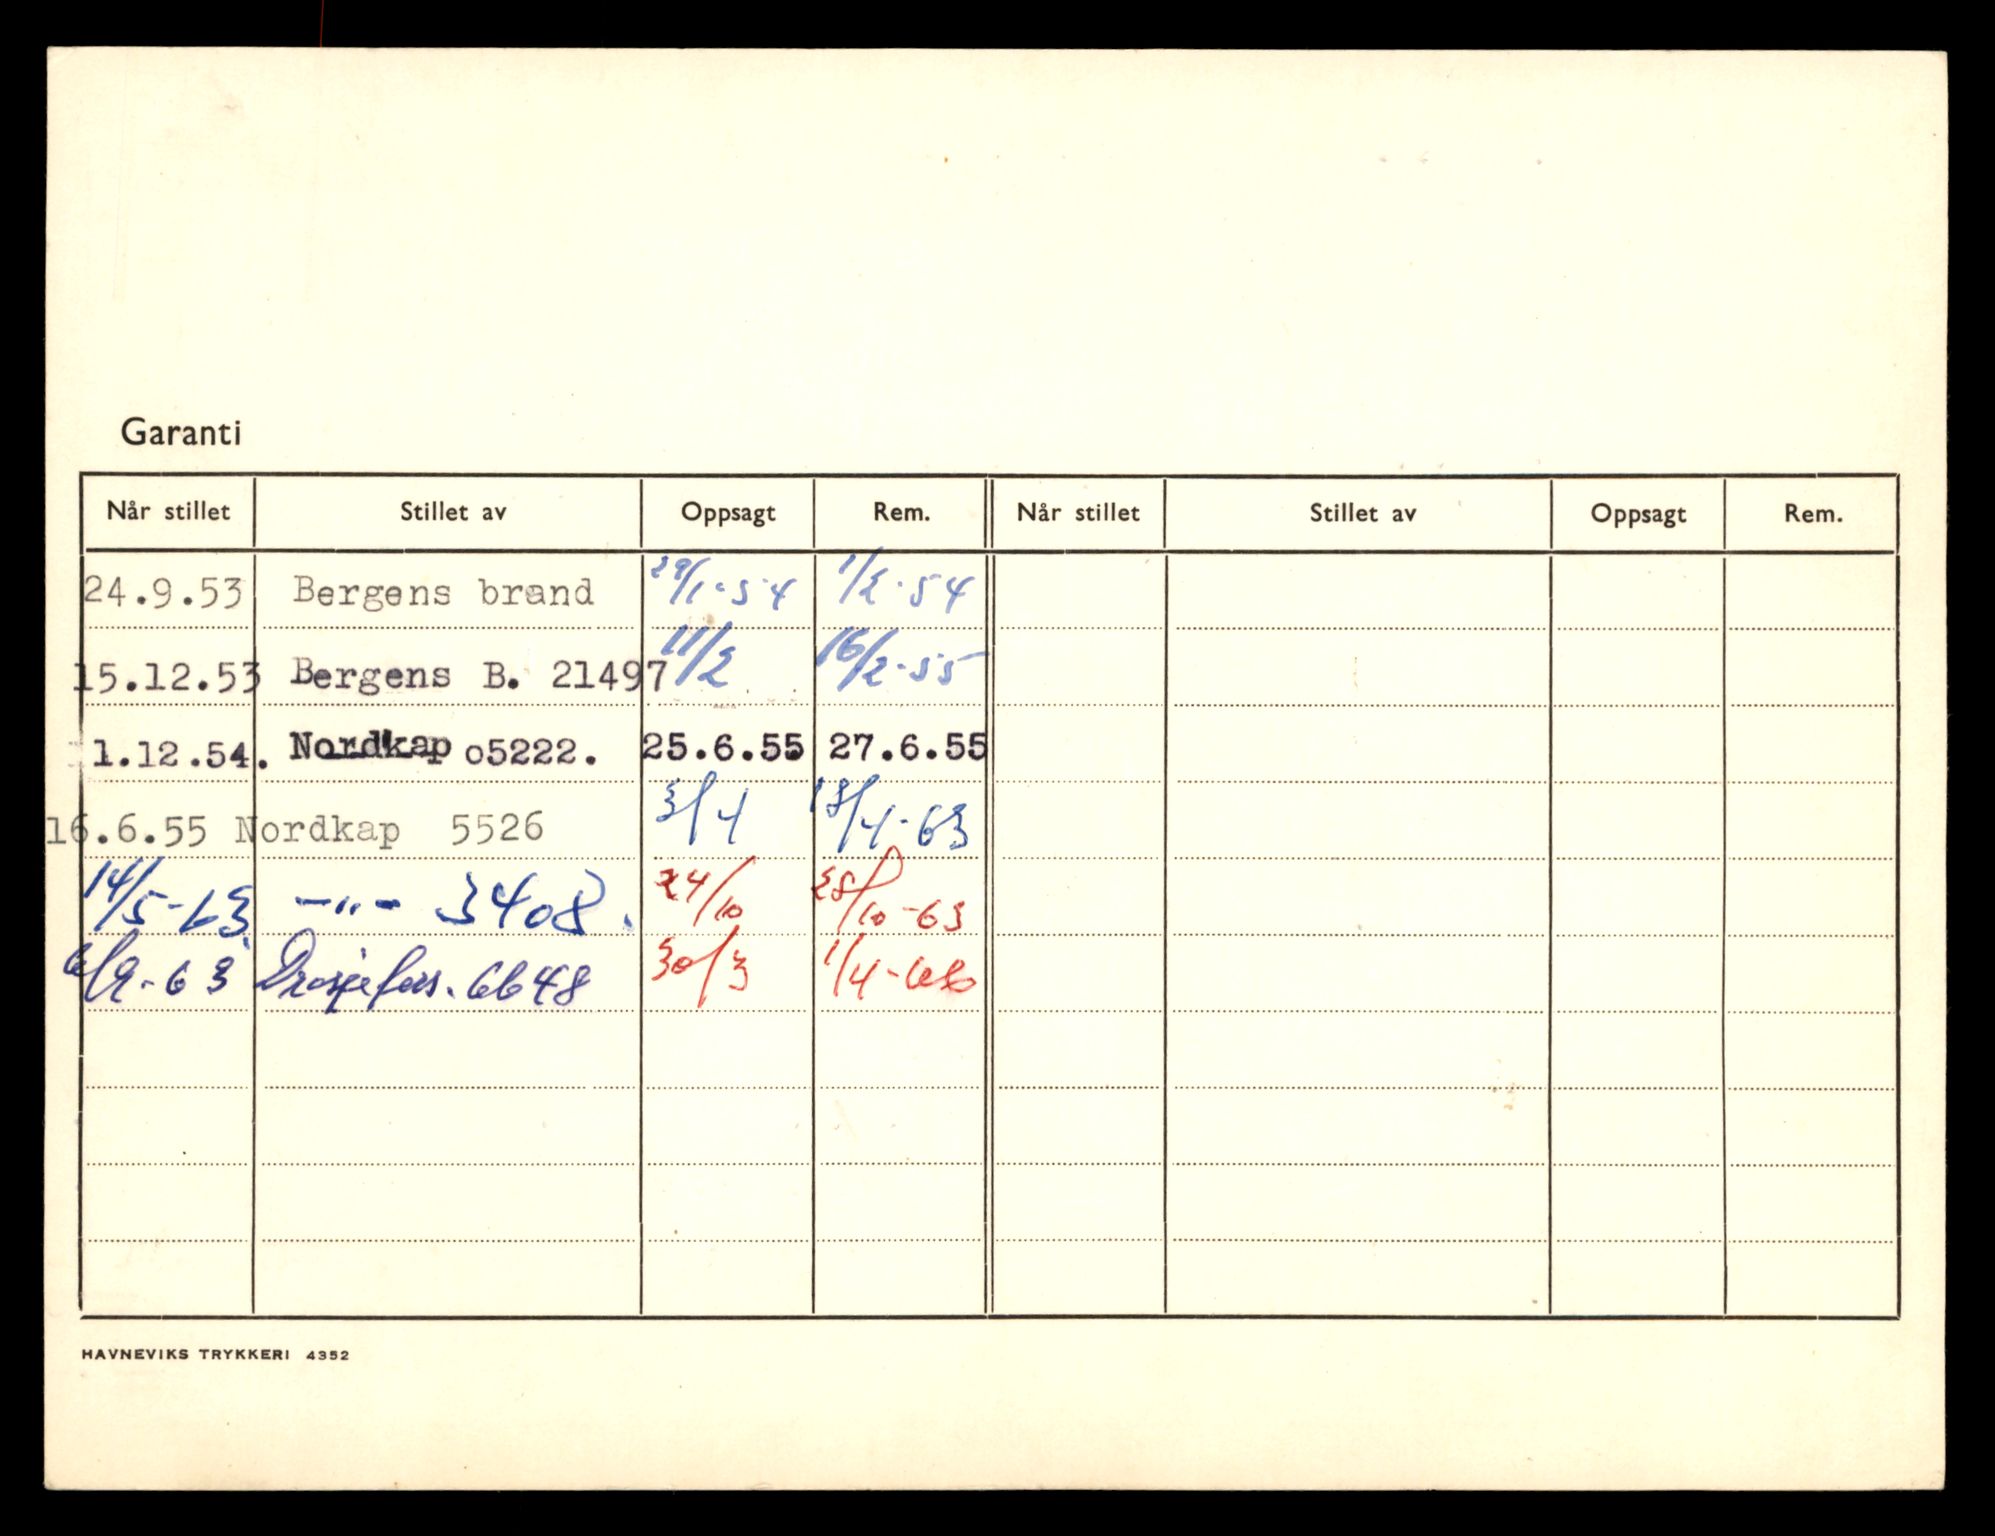 Garanti
Når stillet Stillet av Oppsagt Rem. Når stillet Stillet av Oppsagt Rem.
24.9.53 Bergens brand 29/1-54 1/2-54
15.12.53 Bergens B. 21497 11/2 16/2-55
1.12.54. Nordkap 05222. 25.6.55 27.6.55
16.6.55 Nordkap 5526 3/4 18/4-63
14/5-63 -"- 3408. 24/10 28/10-63
6/9-63 Drosjefors. 6648 30/3 1/4-
HAVNEVIKS TRYKKERI 4352